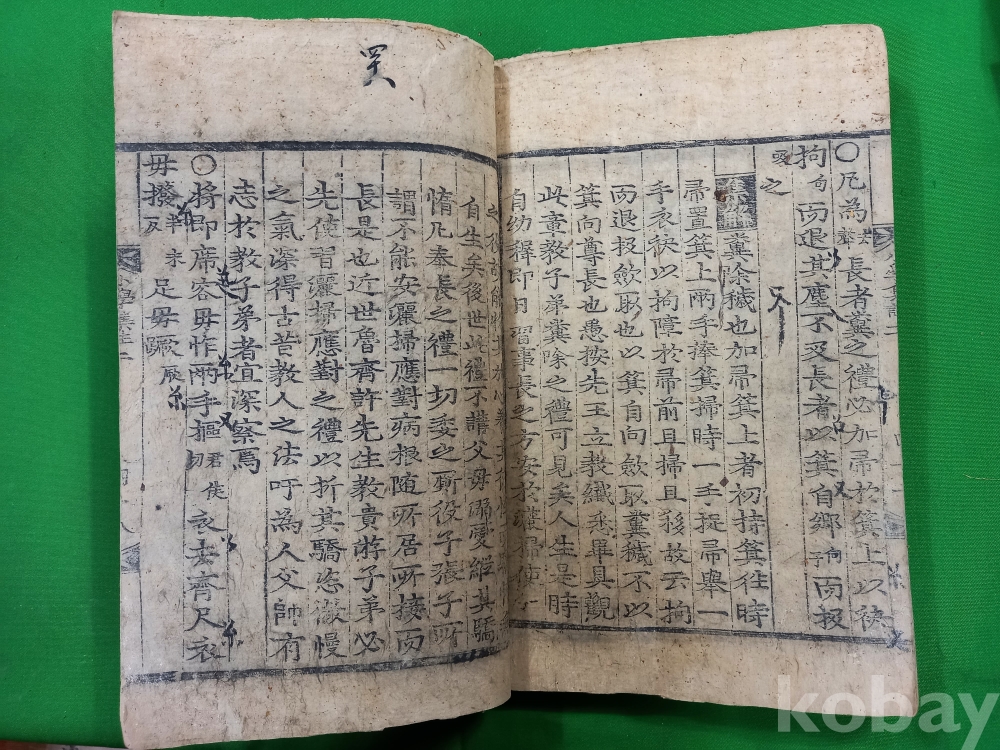 ○凡為去聲長者糞之禮必加帚於箕上以袂
拘句而退其塵不及長者以箕自鄕向而扱
吸之
集說糞除穢也加帚箕上者初持箕往時
帚置箕上兩手捧箕掃時一手捉帚舉一
手衣袂以拘障於前且掃且移故云拘
而退扱斂取也以箕自向斂取糞穢不以
箕向尊長也愚按先王立教纖悉畢具觀
此章教子弟糞除之禮可見矣人生是時
自幼穉即日習事長之方安於灑掃使令
之役故能
自生矣後世此禮不講父母溺愛縱其驕
惰凡奉長之禮一切委之廝役子張子所
謂不能安灑掃應對病根隨所居所接而
長是也近世魯齊許先生教貴游子弟必
先使習灑掃應對之禮以折其驕恣傲慢
之氣深得古昔教人之法吁為人父師有
志於教子弟者宜深察焉
○將即席容毋怍兩手摳衣去齊尺衣
毋撥半末反足毋蹶厥
kobay